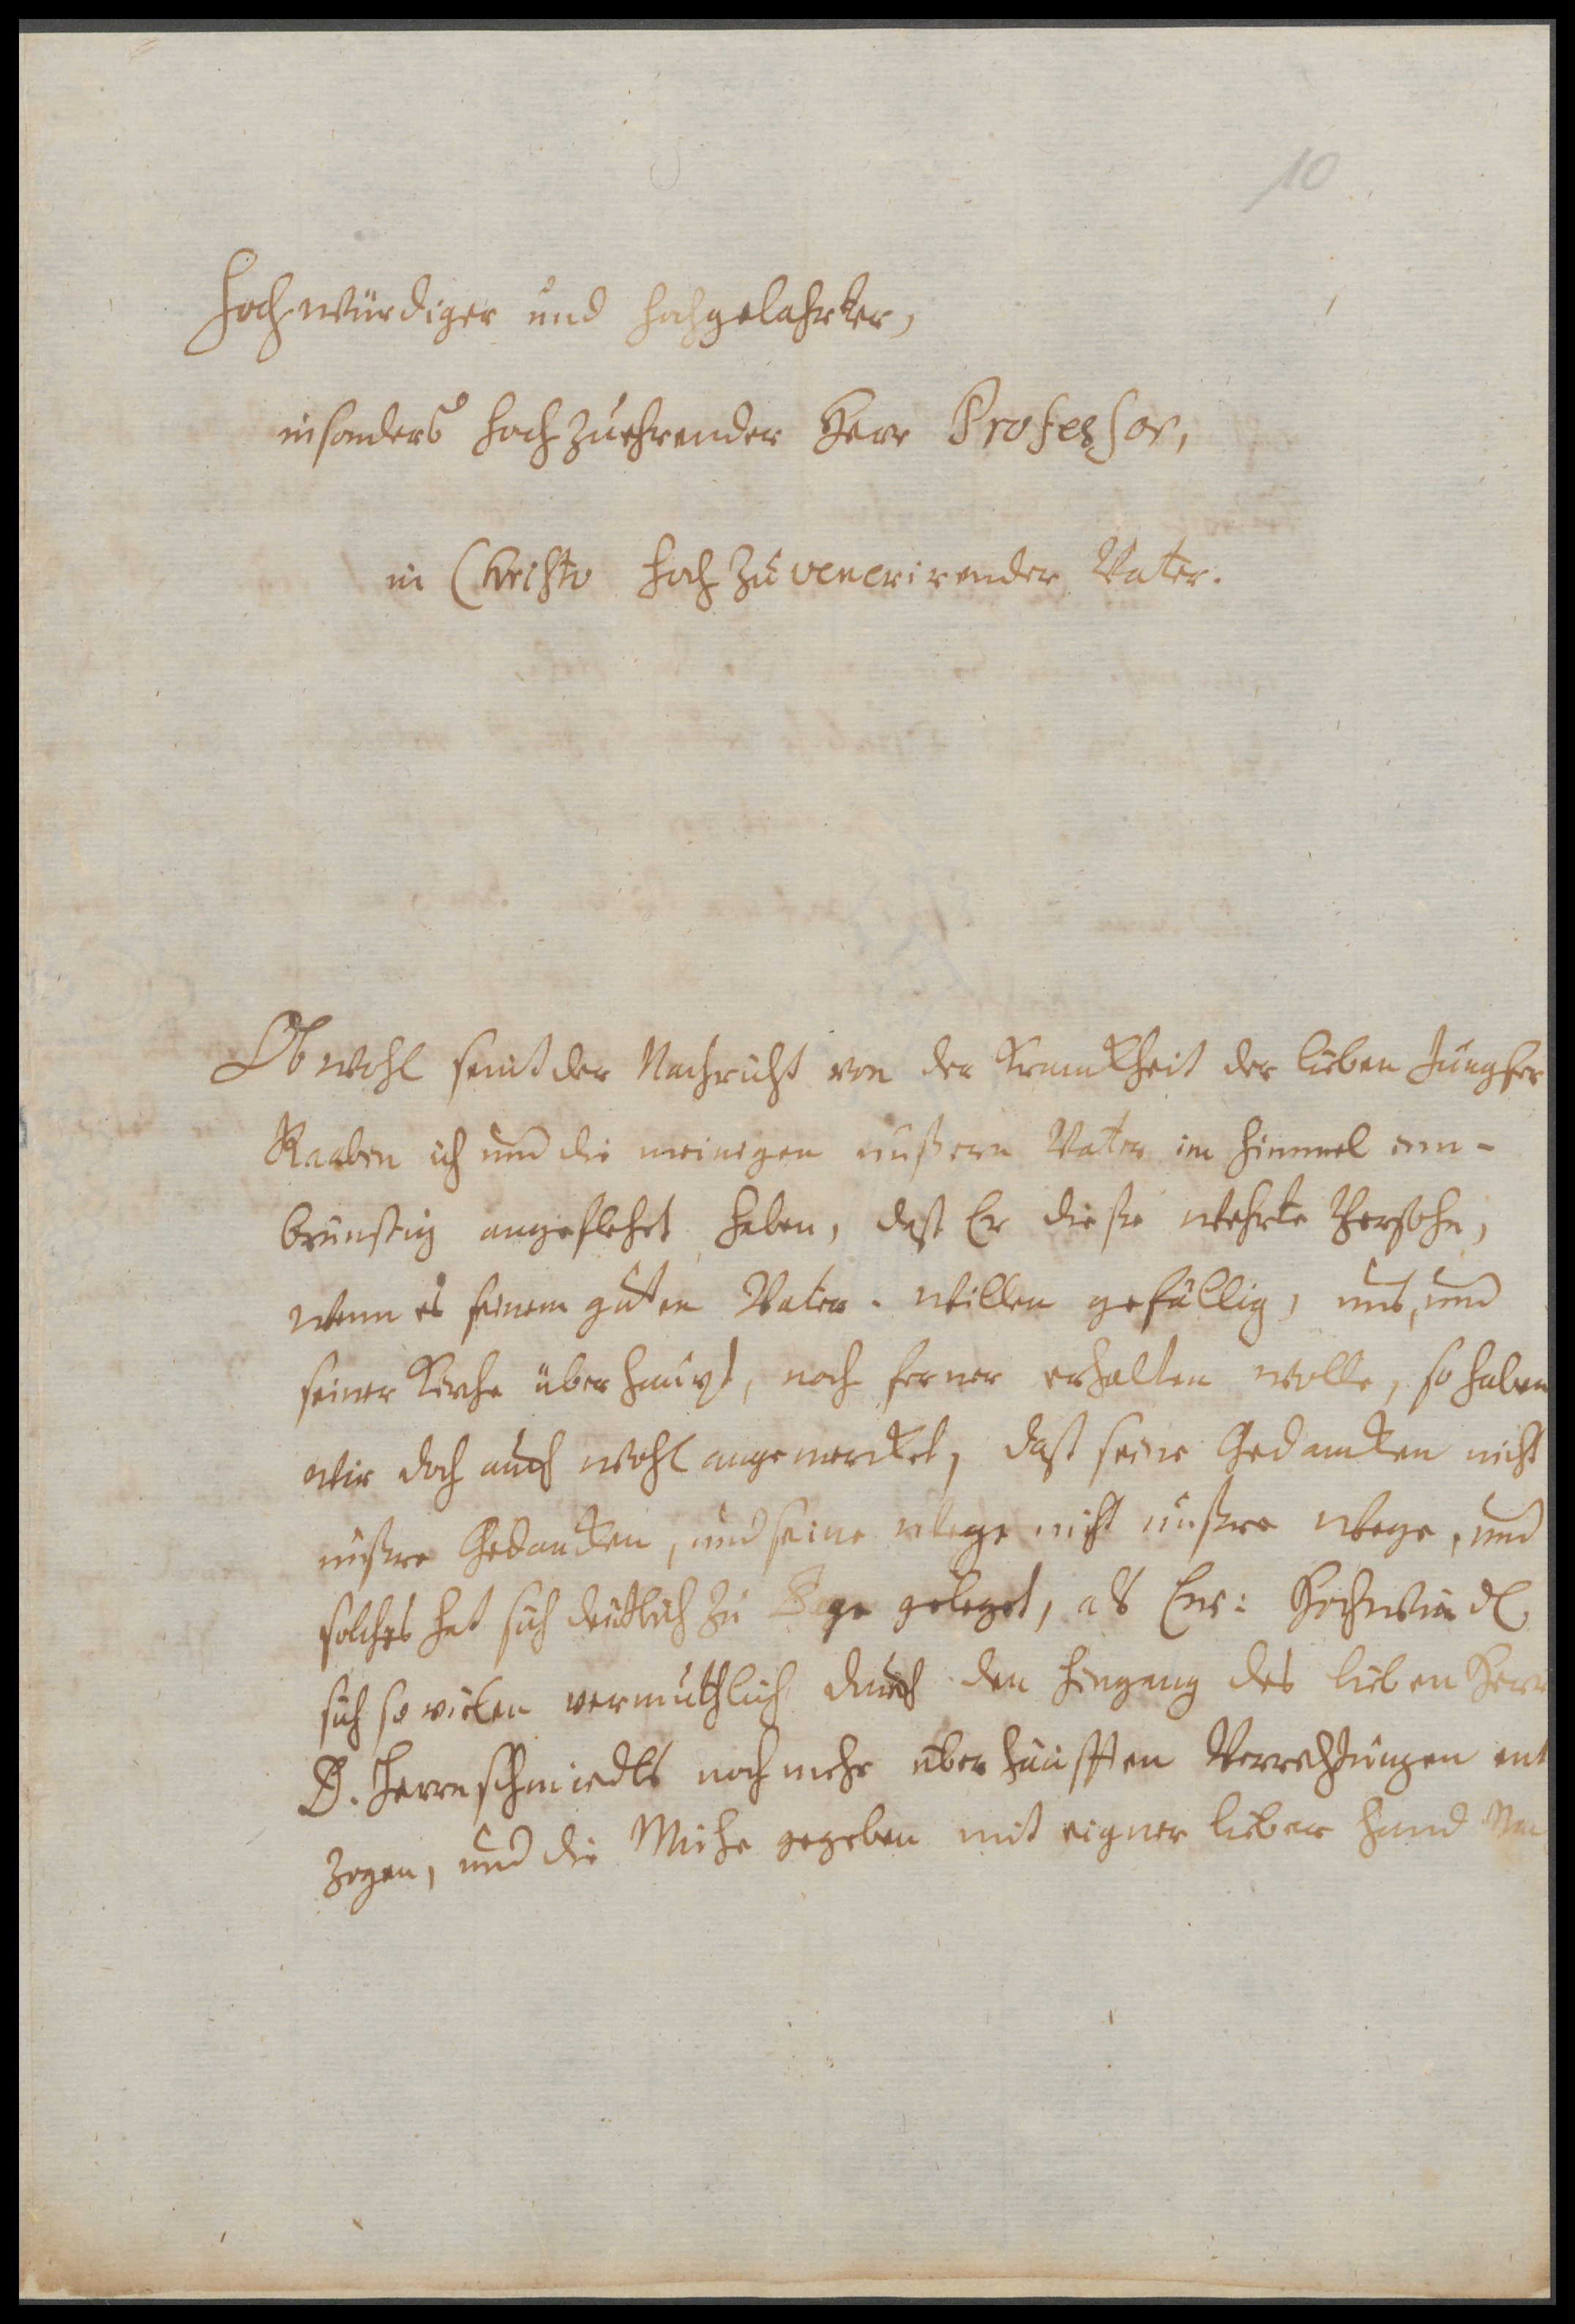 10
Hochwürdiger und hochgelahrter,
insonders hochzuehrender Herr Professor,
in Christo hoch zu venerirender Vater.
Ob wohl seint der Nachricht von der Kranckheit der lieben Jungfer
Raaben ich und die meinigen unßern Vater im Himmel inn-
brünstig angeflehet haben, daß Er dieße wehrte Persohn,
wenn es seinem guten Vater-willen gefällig, uns, und
seiner Kirche überhaupt, noch ferner erhalten wolle, so haben
wir doch auch wohl angemercket, daß seine Gedancken nicht
unßre Gedancken, und seine wege nicht unßre wege, und
solches hat sich deutlich zu Tage geleget, als Ew: Hochwürd
sich so vielen vermuthlich durch den Hingang des lieben Herr
D. Herrnschmiedts noch mehr überhäufften Verrichtungen ent
zogen, und die Mühe gegeben mit eigner lieber Hand Na